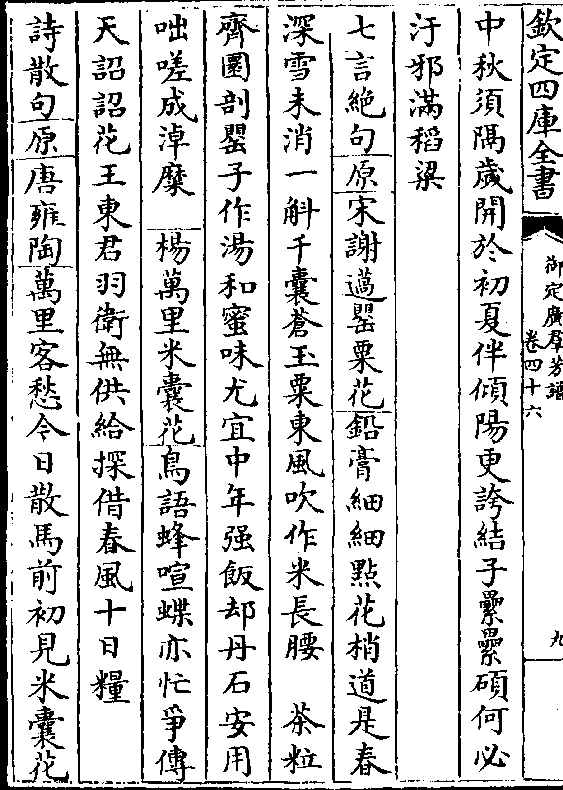 欽定四庫全書
御定廣羣芳譜
卷四十六
九
中秋須隅歲開於初夏伴傾陽更誇結子纍纍碩何必
汙邪滿稻梁
七言絶句原宋謝薖罌粟花鉛膏細細點花梢道是春
深雪未消一斛千囊蒼玉粟東風吹作米長腰　茶粒
齊圓剖罌子作湯和蜜味尤宜中年强飯却丹石安用
咄嗟成淖糜　楊萬里米囊花鳥語蜂喧蝶亦忙爭傳
天詔詔花王東君羽衛無供給探借春風十日糧
詩散句原唐雍陶萬里客愁今日散馬前初見米囊花